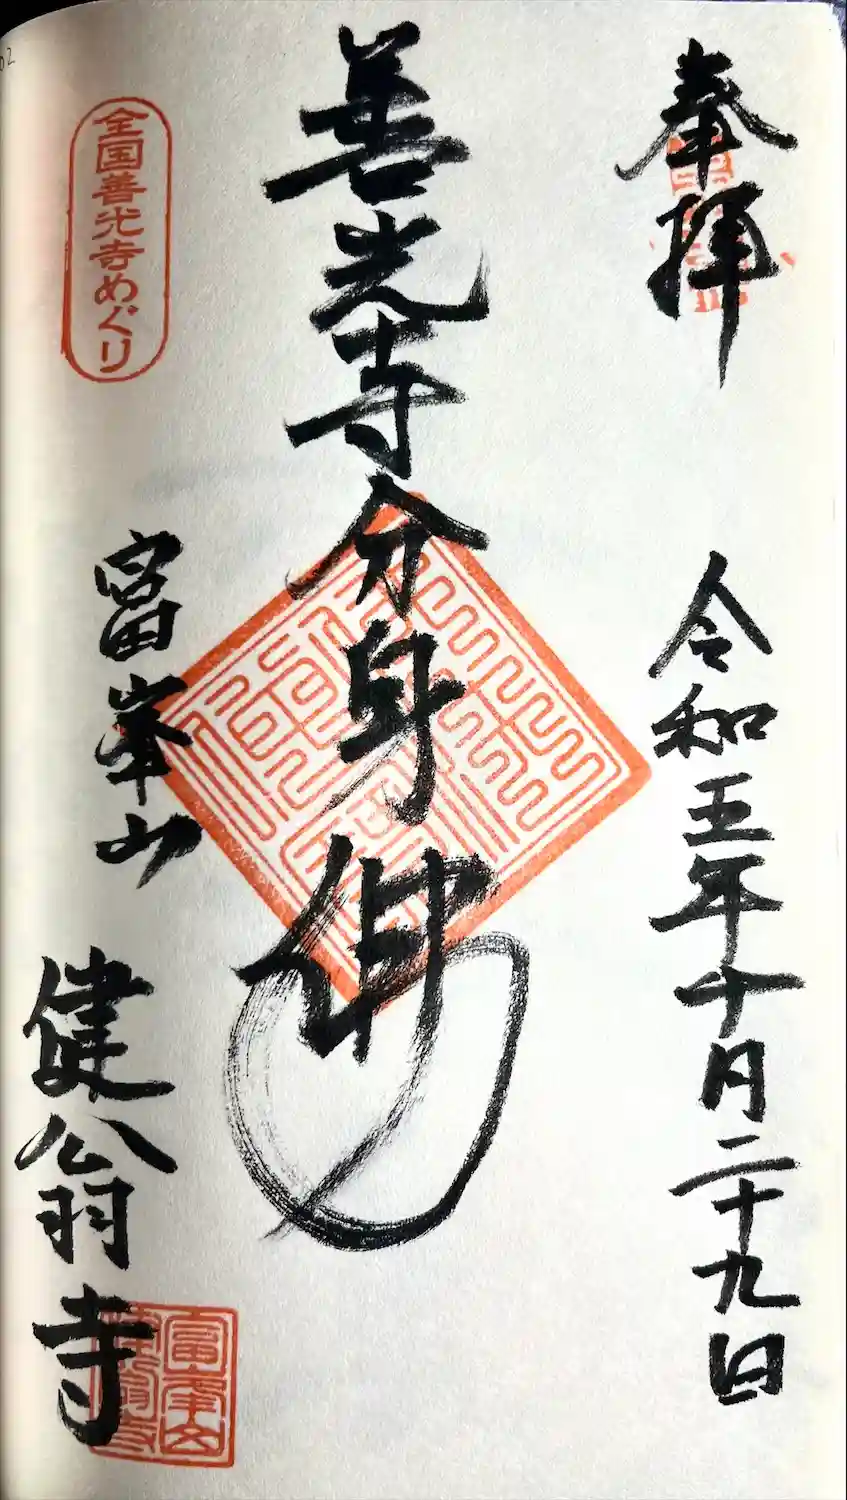 奉拝
令和五年十月二十九日
善光寺分身佛
富峯山
健翁寺
全国善光寺めぐり
富峯山
健翁寺